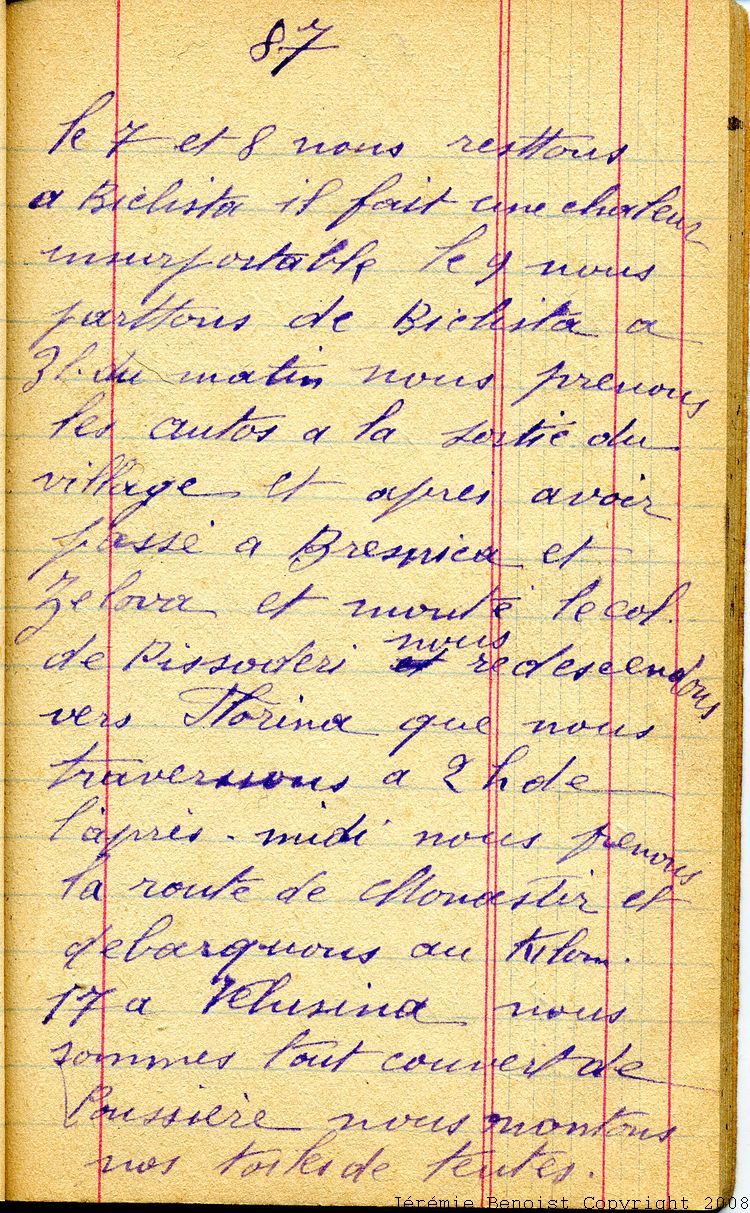 87
le 7 et 8 nous resttons
a Biclista il fait une chaleur
insurportable le 9 nous
parttons de Biclista a
3 h. du matin nous prenons
les autos a la sortie du
village et apres avoir
passé a Bresnica et
Zelova et monté le col.
de Pissoderi nous redescendons
vers Florina que nous
traverssons a 2 h de
l'après-midi nous prenons
la route de Monastir et
debarquons au Kilom.
17 a Velusina nous
sommes tout couvert de
Poussière nous montons
nos toiles de tentes.
Jérémie Benoist Copyright 2008